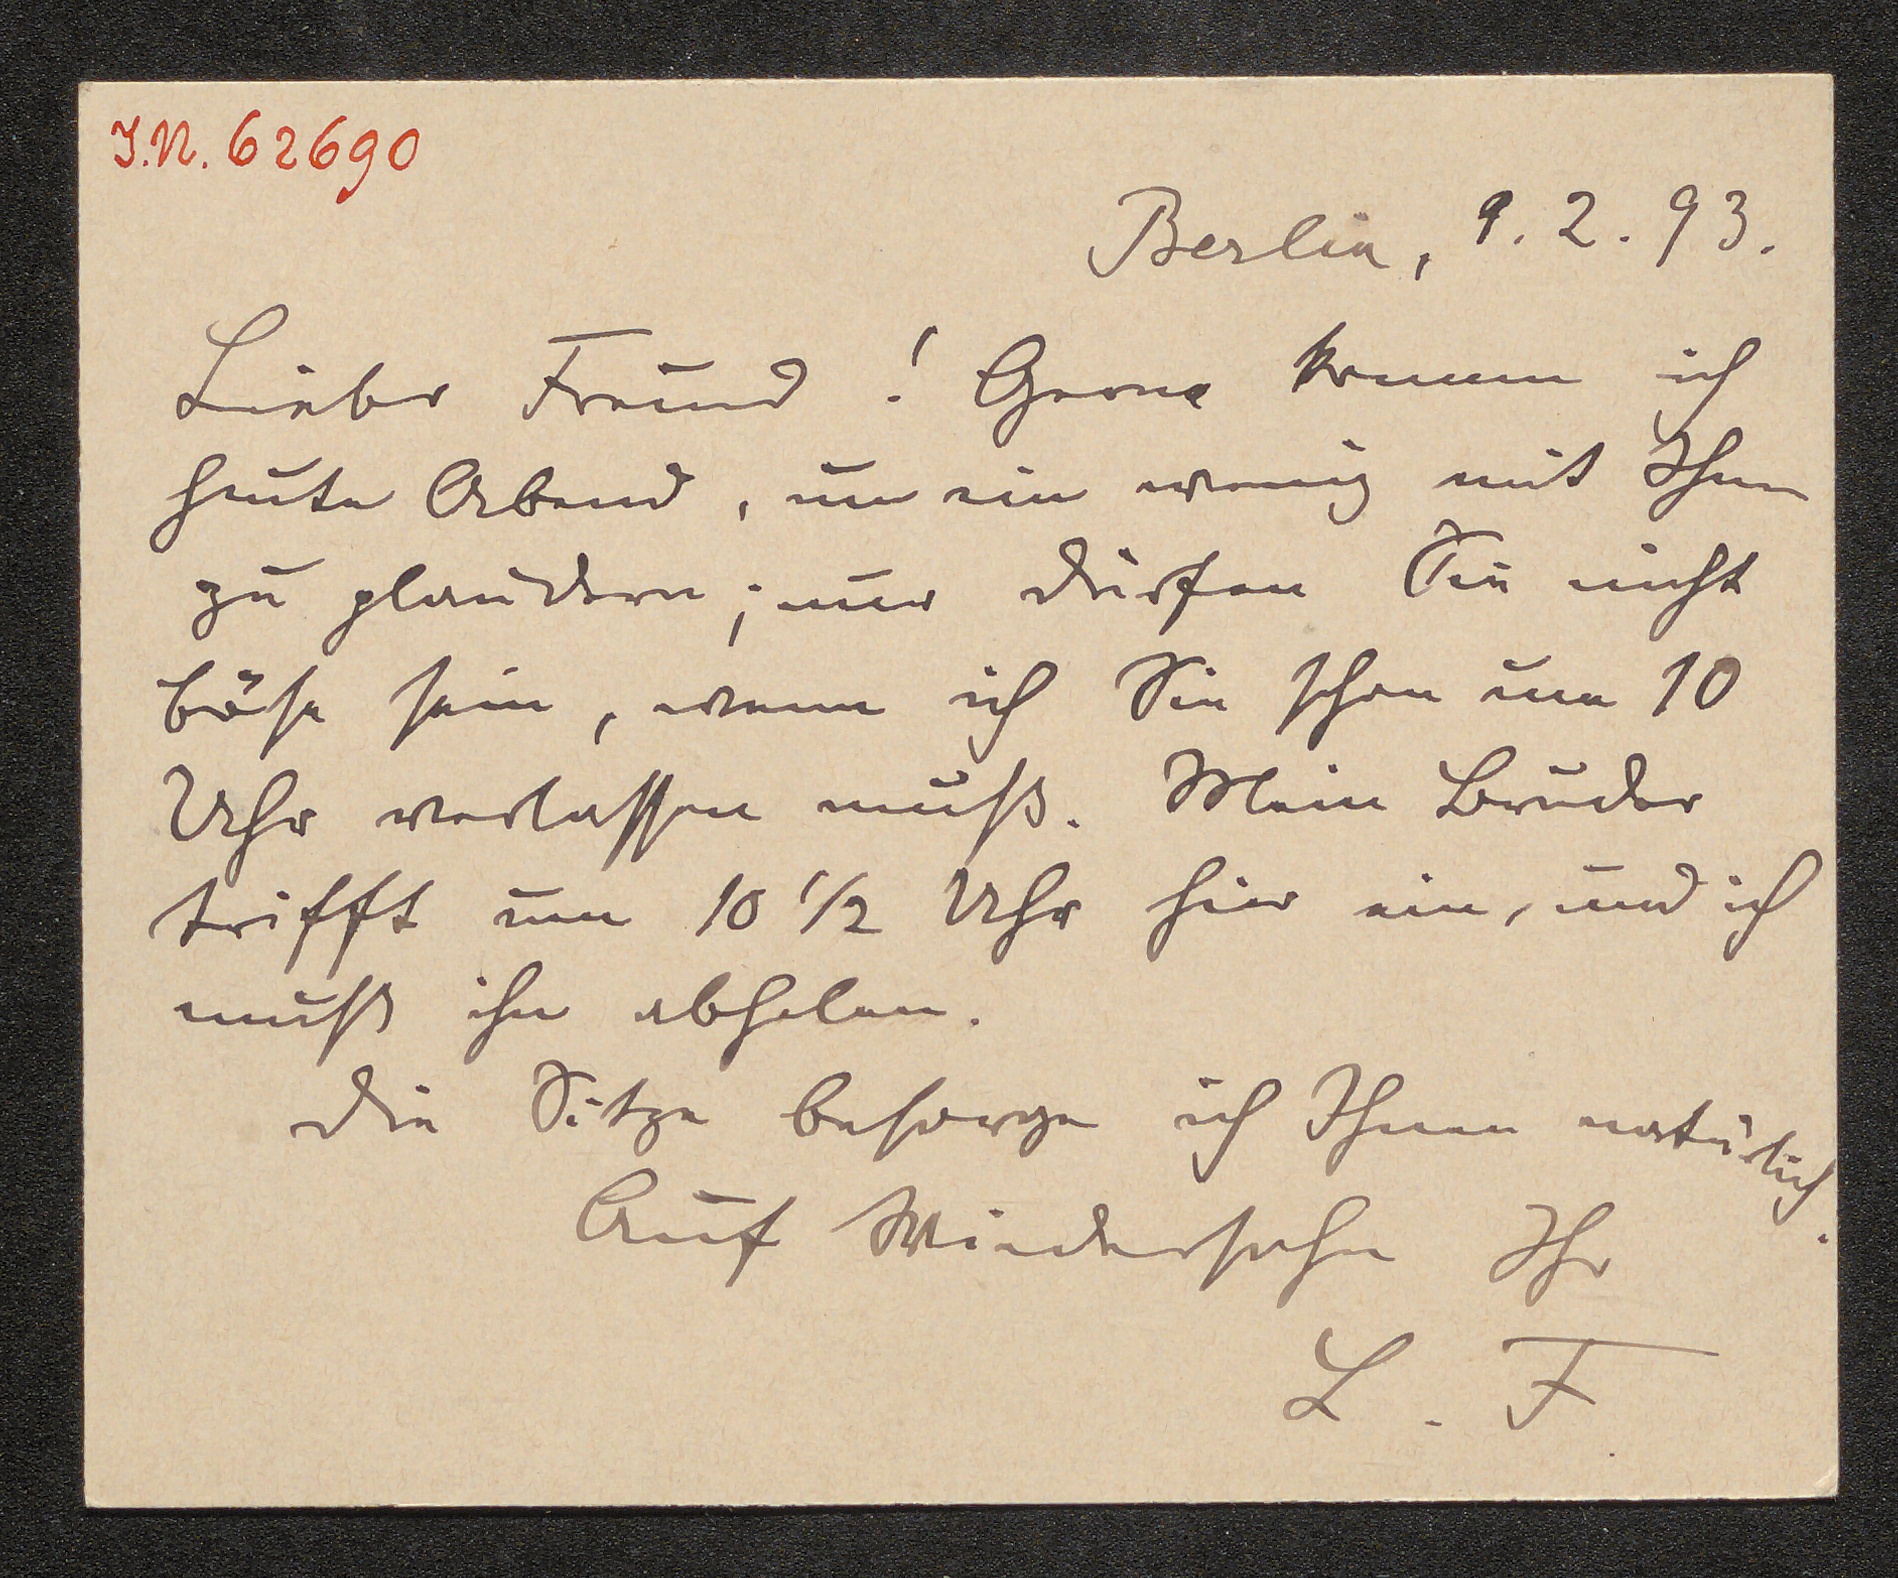 J.N. 62690
Berlin, 9.2.93.
Lieber Freund! Gerne komm ich
heute Abend, um ein wenig mit Ihnen
zu plaudern; nur dürfen Sie nicht
böse sein, wenn ich Sie schon um 10
Uhr verlassen muß. Mein Bruder
trifft um 10 1/2 Uhr hier ein, und ich
muß ihn abholen.
Die Sitze besorge ich Ihnen natürlich.
Auf Wiedersehn Ihr
L. F.